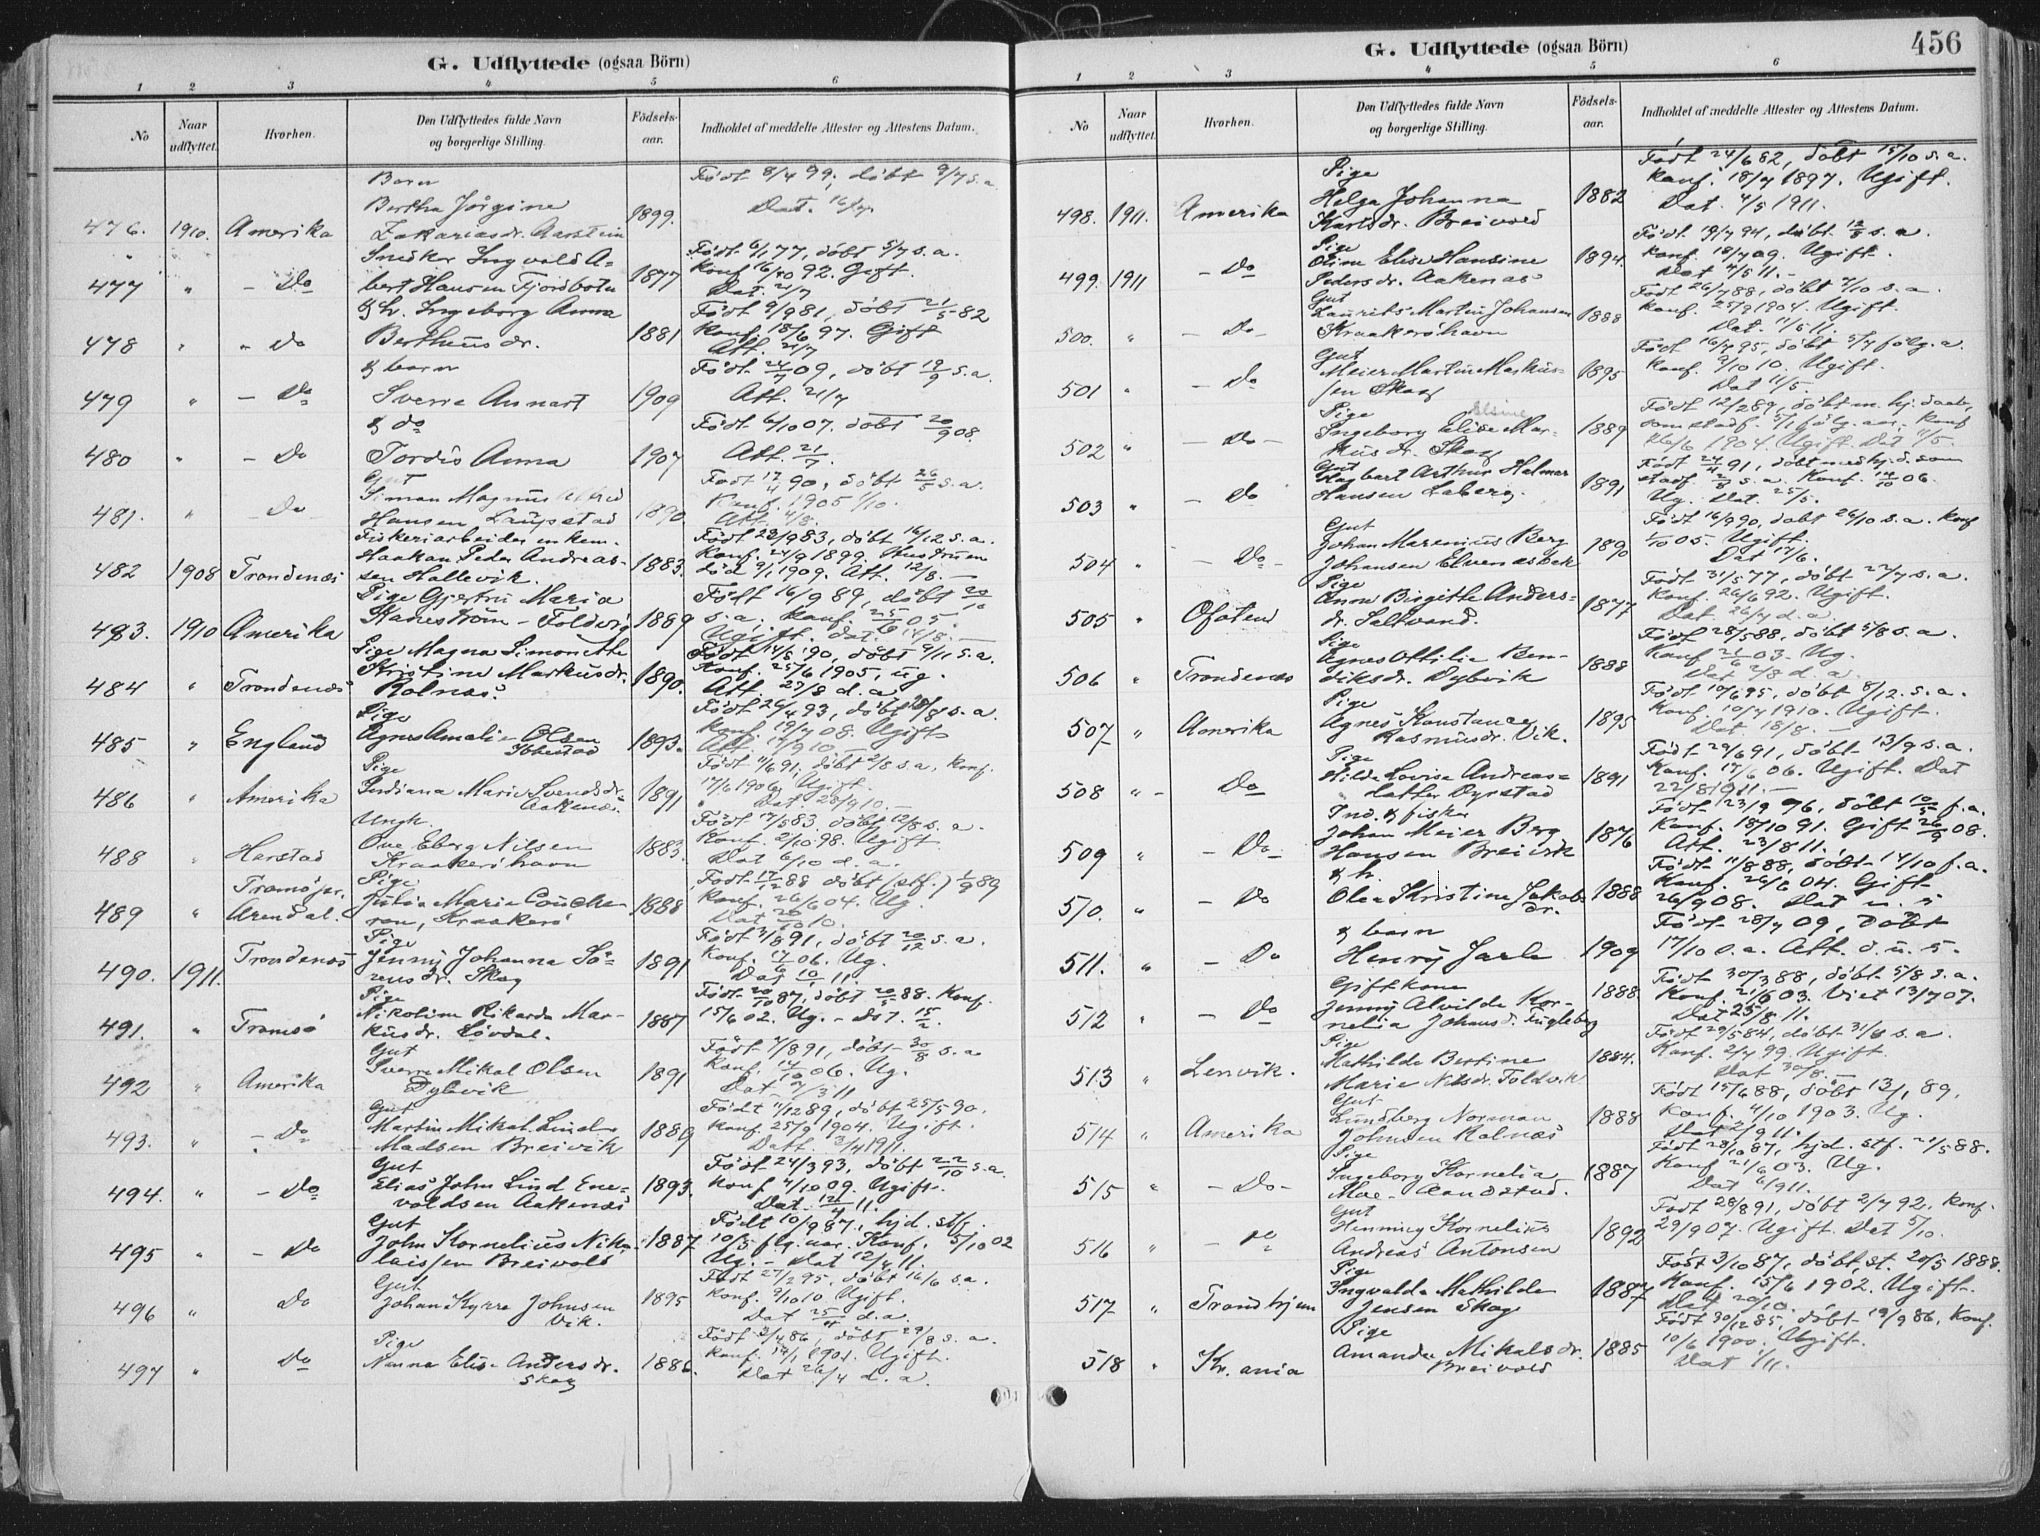 G. Udflyttede (ogsaa Börn)
1 2 3 4 5 6
No
Naar udflyttet.
Hvorhen.
Den Udflyttedes fulde Navn og borgerlige Stilling.
Födsels-aar.
Indholdet af meddelte Attester og Attestens Datum.
Barn Födt 8/4 99, döbt 9/7 s.a.
Bertha Jörgine Dat. 16/4
476. 1910. Amerika Zakariasdr. Aarstein 1899.
Snedker Ingvald A- Födt 6/1 77, döbt 5/7 s.a.
477 " - Do bert Hansen Fjordbotn 1877 Konf 16/10 92. Gift.
Dat. 21/7
& h. Ingeborg Anna Födt 9/9 81, döbt 21/5 82
478 " " Do Bertheusdr. 1881 Konf. 18/6 97. Gift
Att. 21/7
& barn Födt 24/7 09, döbt 12/9 s.a.
479 " - Do Sverre Annart 1909 Att. 21/7
& do Födt 6/10 07. döbt 20/9 08.
480 " - Do Tordis Anna 1907 Att. 21/7.
Gut Födt 17/4 90, döbt 26/5 s.a.
Simon Magnus Alfred Konf. 1905 1/10.
481. " - Do Hansen Laupstad 1890 Att. 4/8.
Fiskeriarbeider enkem. Födt 22/9 83, döbt 16/12 s.a.
Haakon Peder Andreas- Konf. 24/9 1899. Hustruen
482 1908 Trondenæs sen Hallevik. 1883. död 9/1 1909. Att. 12/8.
Pige Gjertru Maria Födt 16/9 89, döbt 20/10
483. 1910 Amerika Hanestrøm - Foldvig 1889 s.a; Konf. 25/6 05.
Ugift. Dat. 14/8.
Pige Magna Simonette Födt 14/8 90, döbt 9/11 s.a.
Kristine Markusdr. Konf. 25/6 1905, ug.
484 " Trondenæs Rolnæs. 1890. Att. 27/8 d.a.
Pige Födt 26/4 93, döbt 20/8 s.a.
485 " England Agnes Amalie Olsen Ibbestad 1893. Konf. 19/7 08. Ugift
Att. 17/9 10.
Pige Födt 11/6 91, döbt 2/8 s.a. Konf.
486 " Amerika Indiana Marie Svendsdr. Aakenæs. 1891 17/6 1906 Ugift.
Dat 28/9 10.
Ungk. Födt 17/5 83 döbt 12/8 s.a.
488 " Harstad Ove Eberg Nilsen 1883. Konf. 2/10 98. Ugift
Kraakeröhavn Dat 6/10 d.a.
Tromsöpr. Pige Födt 17/12 88 döbt (stf.) 1/9 89
489 " Arendal. Julie Marie Couche- 1888 Konf. 26/6 04. Ug.
ron, Kraakerö Dat 20/10 10.
Pige Födt 3/8 91, döbt 20/12 s.a.
490. 1911. Trondenæs Jenny Johanna Sö- 1891 Konf. 17/6 06. Ug.
rensdr. Skog Dat 10/1 11.
Pige Födt 20/10 87, döbt 20/5 88. Konf.
491. " Tromsö Nikoline Rikarda Mar- 1887 15/6 02. Ug. - Dat. 15/2.
kusdr. Lövdal.
Gut Födt 4/8 91, döbt 30/8 s.a
492 " Amerika Sverre Mikal Olsen 1891 Konf. 14/10 06. Ug.
Dybvik Dat 7/3 11
Gut Födt 11/12 89, döbt 25/5 90.
493. " - Do Martin Mikal Lind 1889 Konf. 25/9 1904. Ugift.
Madsen Breivik Datt. 3/4 1911.
Gut Födt 24/3 93, döbt 22/10 s.a.
494. " - Do Elias John Lind Ene- 1893. Konf 4/10 09. Ugift.
valdsen Aakenæs Dat. 12/4 11.
Gut Födt 10/9 87, hjd. stf.
495 " - Do John Kornelius Niko- 1887 10/5 flg. aar. Konf. 5/10 02
laissen Breivold Ug. - Dat 12/4 11.
Gut Födt 27/2 95, döbt 16/6 s.a.
496 " Do Johan Kyrre Johnsen 1895 Konf. 9/10 10 Ugift.
Vik. Dat 25/4 d.a.
Pige Födt 3/4 86, döbt 29/8 s.a.
497 " Do Nanna Elise Andersdr. 1886. Konf. 14/1 1901. Ugift.
Skog Dat 26/4 d.a.
G. Udflyttede (ogsaa Börn) 456
1 2 3 4 5 6
No
Naar udflyttet.
Hvorhen.
Den Udflyttedes fulde Navn og borgerlige Stilling.
Födsels-aar.
Indholdet af meddelte Attester og Attestens Datum.
Pige Födt 24/6 82, döbt 15/10 s.a.
Helga Johanna 1882 Konf. 18/7 1897. Ugift.
498. 1911. Amerika Karlsdr. Breivold Dat. 4/5 1911.
Pige Födt 19/7 94, döbt 12/8 s.a.
499. 1911 - Do Oline Elise Hansine 1894. Konf. 18/7 09. Ugift.
Pedersdr. Aakenæs Dat 4/5 11.
Gut Födt 26/7 88, döbt 7/10 s.a.
500. " - Do - Laurits Martin Johansen 1888 Konf. 25/9 1904. Ugift.
Kraakeröhavn Dat. 11/5 11.
Gut Födt 16/7 95, döbt 5/7 fölg. a.
501 " - Do Meier Martin Markus- 1895 Konf. 9/10 10. Ugift.
sen Skog Dat 11/5.
Pige Elsine Födt 12/2 89, döbt m. hj. daab,
502 " - Do - Ingeborg Elise Mar- 1889 som stadf. 5/1 fölg. aar, Konf
kusdr. Skog 26/6 1904. Ugift. Dat 11/5.
Gut Födt 24/4 91, döbt med hj. d. som
503 " - Do Hagbart Arthur Halmar 1891 stadf. 2/8 s.a. Konf. 14/10 06.
Hansen Laberg. Ug. Dat. 25/5.
Gut Födt 16/9 90, döbt 26/10 s.a. Konf
504 " - Do - Johan Marenius Berg 1890 1/10 05. Ugift.
Johansen Elvenesbak Dat 17/6.
Pige Födt 31/5 77, döbt 22/7 s.a.
505 " Ofoten Anna Birgitte Anders- 1877 Konf. 26/6 92. Ugift.
dr. Saltvand. Dat. 26/7 d.a.
Pige Födt 28/5 88, döbt 5/8 s.a.
506 " Trondenæs Agnes Ottilie Ben- 1888 Konf 21/6 03. Ug.
diksdr. Dybvik Dat 2/8 d.a.
Pige Födt 10/6 95, döbt 8/12. s.a.
507 " Amerika Agnes Konstance 1895 Konf. 10/7 1910. Ugift.
Rasmusdr. Vik. Dat. 18/8.
Pige Födt 29/6 91, döbt 13/9 s.a.
508 " - Do Hilda Lovise Andreas- 1891 Konf. 17/6 06. Ugift. Dat
datter Dyrstad 22/8 1911.
Ind. & fisker Födt 23/9 76, döbt 10/5 f.a.
509 " - Do Johan Meier Berg 1876 Konf. 18/10 91. Gift 26/9 08.
Hansen Breivik Att. 23/8 11.
& h. Födt 11/8 88, döbt 14/10 f.a.
510. " - Do Olea Kristine Jakobs 1888 Konf. 26/6 04. Gift
dr. 26/9 08. Dat u. s
& barn Födt 28/7 09, döbt
511. " - Do Henry Jarle 1909 17/10 s.a. Att. d.u. s.
Gift kone Födt 30/3 88, döbt 5/8 s.a.
512 " - Do Jenny Alvilde Kor- 1888. Konf. 21/6 03. Viet 13/7 07.
nelia Johansd. Fugleberg Dat 25/8 11.
Pige Födt 29/5 84, döbt 31/8 s.a.
513 " Lenvik. Mathilde Bertine 1884. Konf. 2/7 99. Ugift.
Marie Nilsdr. Foldvik Dat 30/8.
Gut Födt 15/6 88, döbt 13/1 89,
514 " Amerika Lundberg Norman 1888 Konf. 4/10 1903. Ug.
Johnsen Rolnæs Dat 2/9 11.
Pige Födt 28/10 87, hjd. stf. 21/5 88.
515 " - Do - Ingeborg Kornelia 1887 Konf 21/6 03. Ug.
Moe - Aandstad. Dat 6/9 11.
Gut Födt 28/8 91, döbt 2/7 92. Konf.
516 " - Do Henning Kornelius 1892 29/9 07. Ugift. Dat 5/10.
Andreas Antonsen
Pige Födt 3/10 87, döbt, st. 20/5 1888.
517 " Trondhjem Ingvalda Mathilde 1887 Konf. 15/6 1902. Ugift.
Jensen Skog Dat 20/10.
Pige Födt 30/12 85, döbt 19/9 86, Konf.
518 " Kr.ania Amanda Mikalsdr. 1885 10/6 1900. Ugift.
Breivold Dat 1/11.